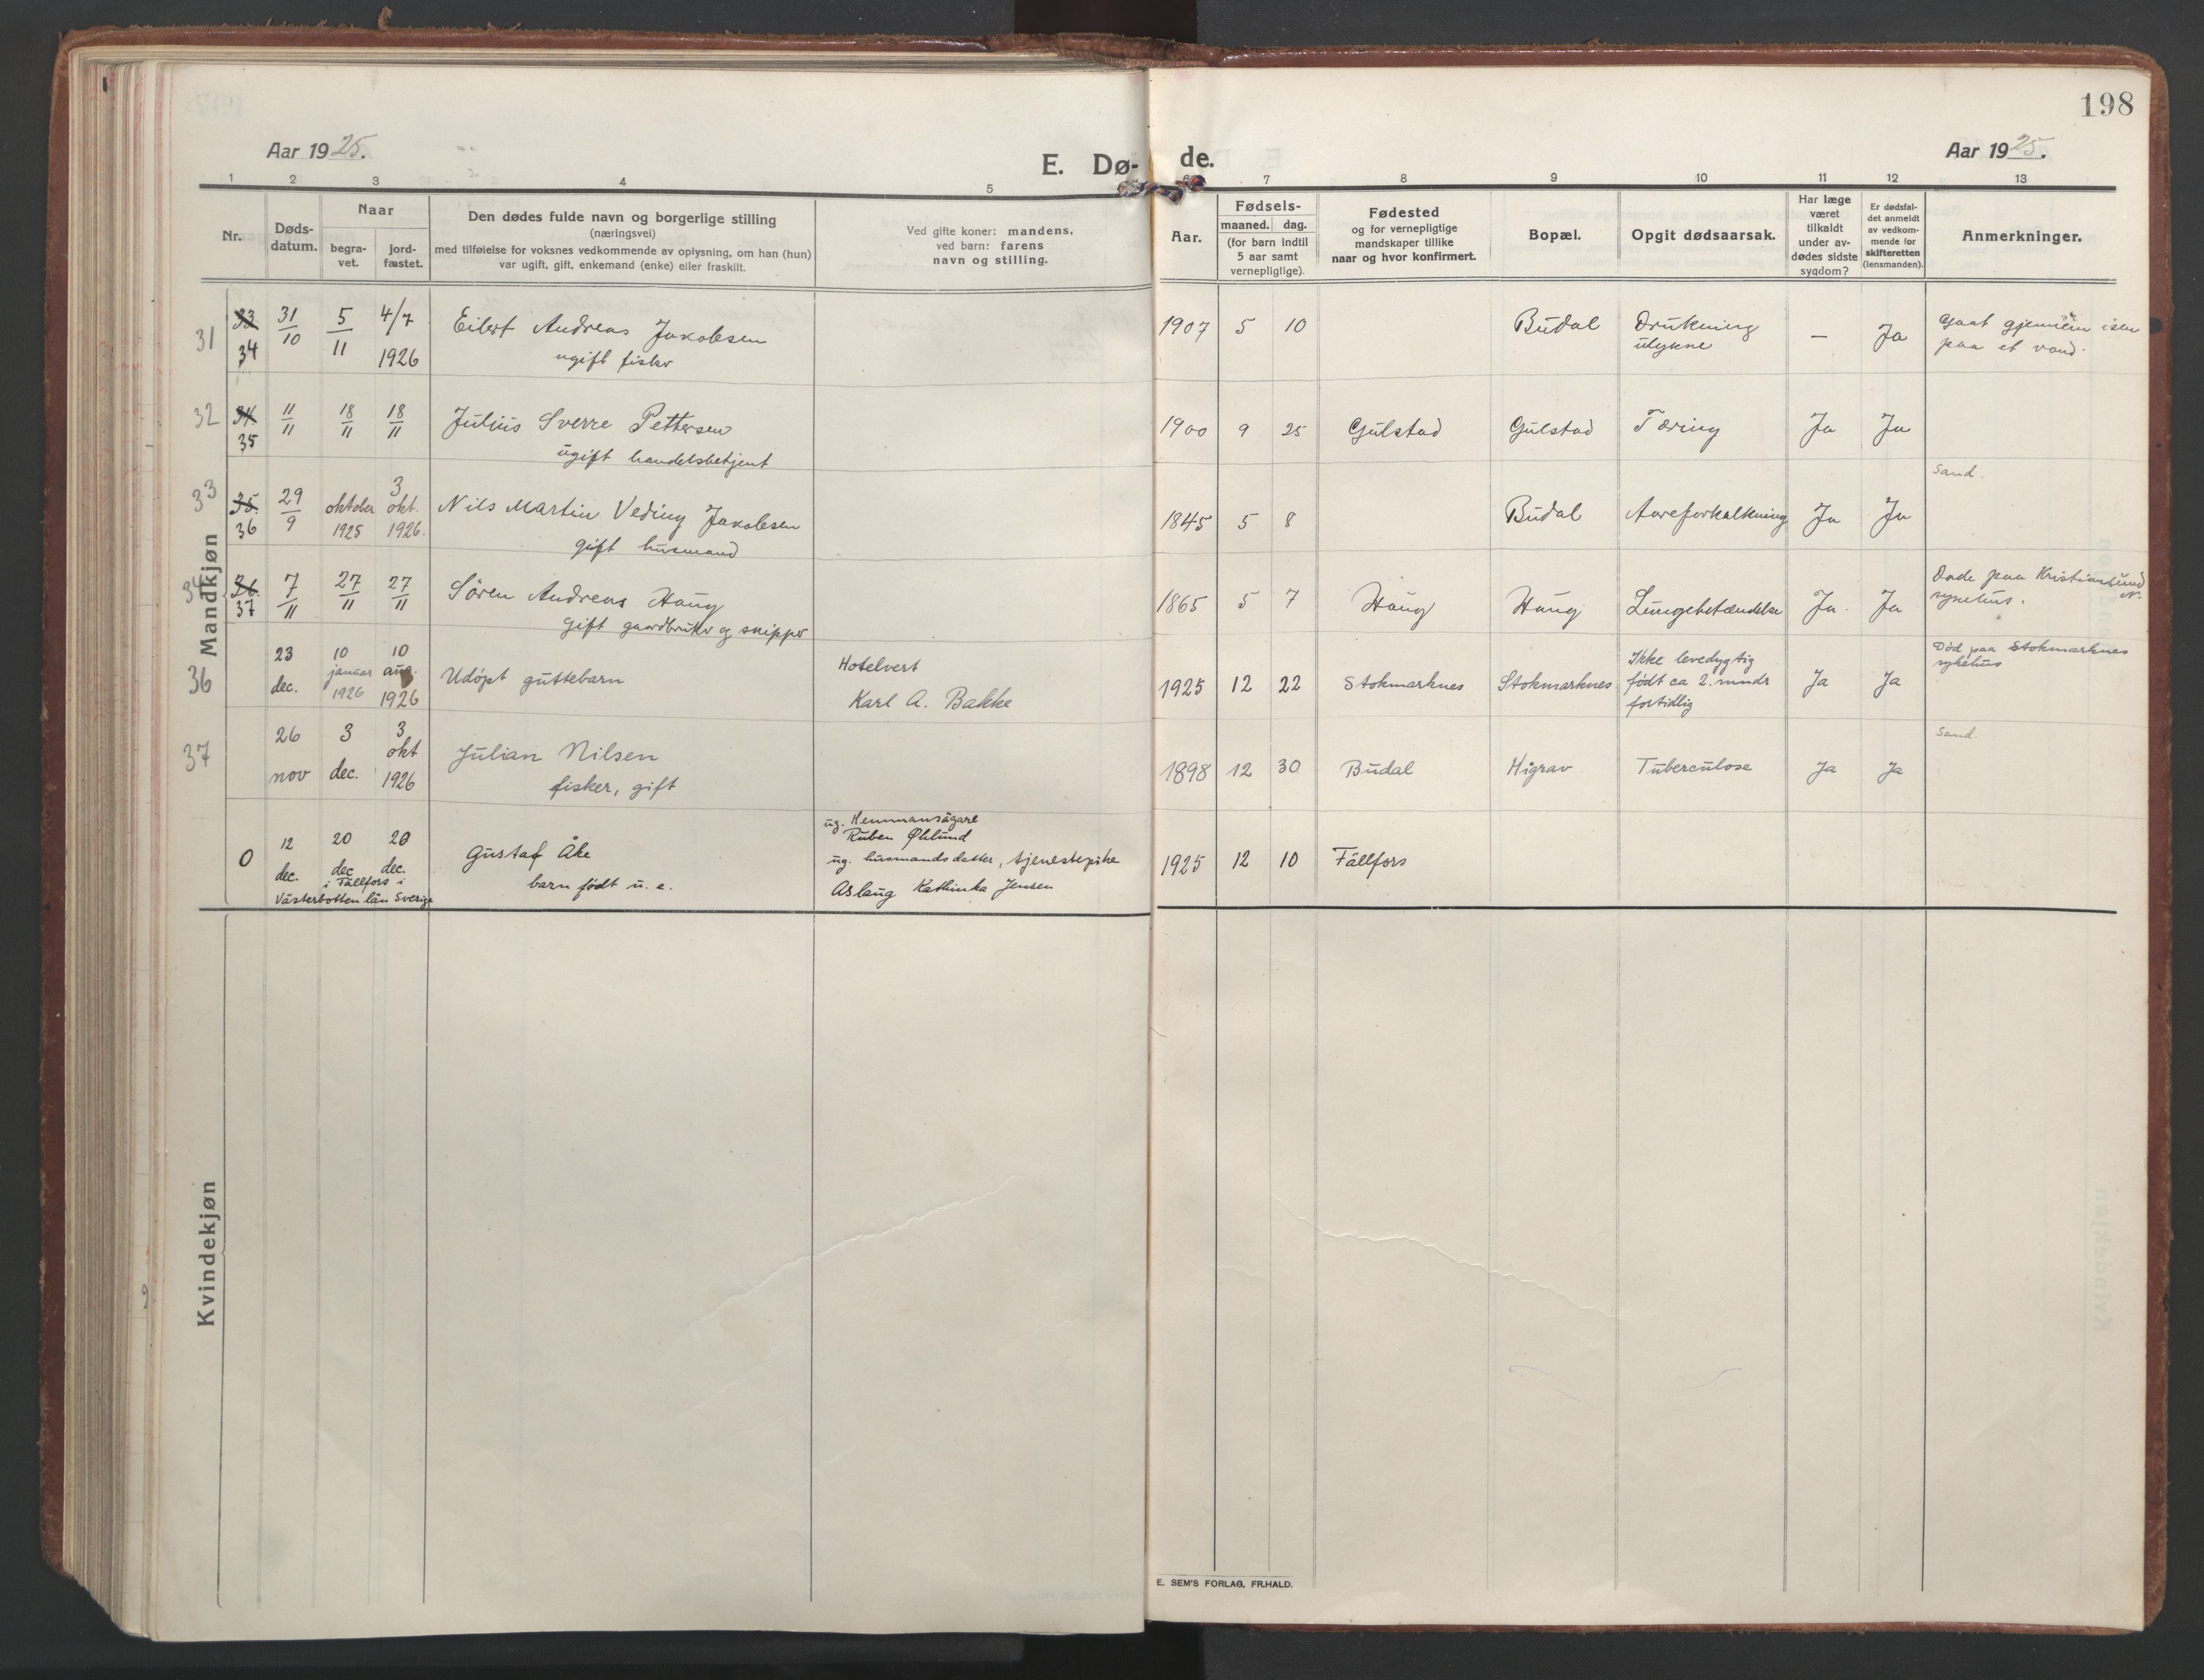 198
Aar 1925.
E. Dø-
de.
Aar 1925.
1 2 3 4 5 6 7 8 9 10 11 12 13
Nr.
Døds-
datum.
Naar
begra-
vet.
jord-
fæstet.
Den dødes fulde navn og borgerlige stilling
(næringsvei)
med tilføielse for voksnes vedkommende av oplysning, om han (hun)
var ugift, gift, enkemand (enke) eller fraskilt.
Ved gifte koner: mandens.
ved barn: farens
navn og stilling.
Aar.
Fødsels-
maaned. dag.
(for barn indtil
5 aar samt
vernepligtige).
Fødested
og for vernepligtige
mandskaper tillike
naar og hvor konfirmert.
Bopæl.
Opgit dødsaarsak.
Har læge
været
tilkaldt
under av-
dødes sidste
sygdom?
Er dødsfal-
det anmeldt
av vedkom-
mende for
skifteretten
(lensmanden).
Anmerkninger.
Mandkjøn
31
33
34
31/10
5/11
4/7
1926
Eilert Andreas Jakobsen
ugift fisker
1907 5 10
Budal
Drukning
ulykke
—
Ja
Gaat gjennem isen
paa et vand.
32
34
35
11/11
18/11
18/11
Julius Sverre Pettersen
ugift handelsbetjent
1900 9 25
Gulstad
Gulstad
Tæring
Ja
Ja
33
35.
36
29/9
oktober
1925
3
okt.
1926.
Nils Martin Veding Jakobsen
gift husmand
1845 5 8
Budal
Aareforkalkning
Ja
Ja
Sand.
34
36.
37
7/11
27/11
27/11
Søren Andreas Haug
gift gaardbruker og skipper
1865 5 7
Haug
Haug
Lungebetændelse
Ja.
Ja
Døde paa Kristiansund
N.
sykehus.
36
23
dec.
10
januar
1926
10
aug.
1926
Udøpt guttebarn
Hotelvert
Karl A. Bakke
1925 12 22
Stokmarknes
Stokmarknes
Ikke levedygtig
født ca 2. mndr
fortidlig
Ja
Ja
Død paa Stokmarknes
sykehus
37
26
nov
3
dec.
3
okt
1926
Julian Nilsen
fisker, gift
1898 12 30
Budal
Higrav
Tuberculose
Ja
Ja
Sand.
0
12
dec.
20
dec
20
dec.
i Fällfors i
Västerbotten län Sverige
Gustaf Åke
barn født u. e.
ug. Hemmansägare
Ruben Øhlund
ug. husmandsdatter, tjenestepike
Aslaug Kathinka Jensen
1925 12 10
Fällfors
Kvindekjøn
E. SEM'S FORLAG, FR.HALD.